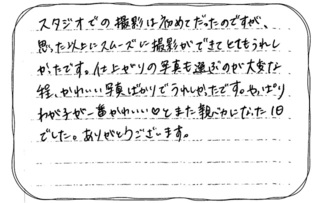 スタジオでの撮影は初めてだったのですが、
思った以上にスムーズに撮影ができてとてもうれし
かったです。仕上がりの写真も選ぶのが大変な
程、かわいい写真ばかりでうれしかたです。やっぱり
わが子が一番かわいい♡とまた親バカになった1日
でした。ありがとうございます。